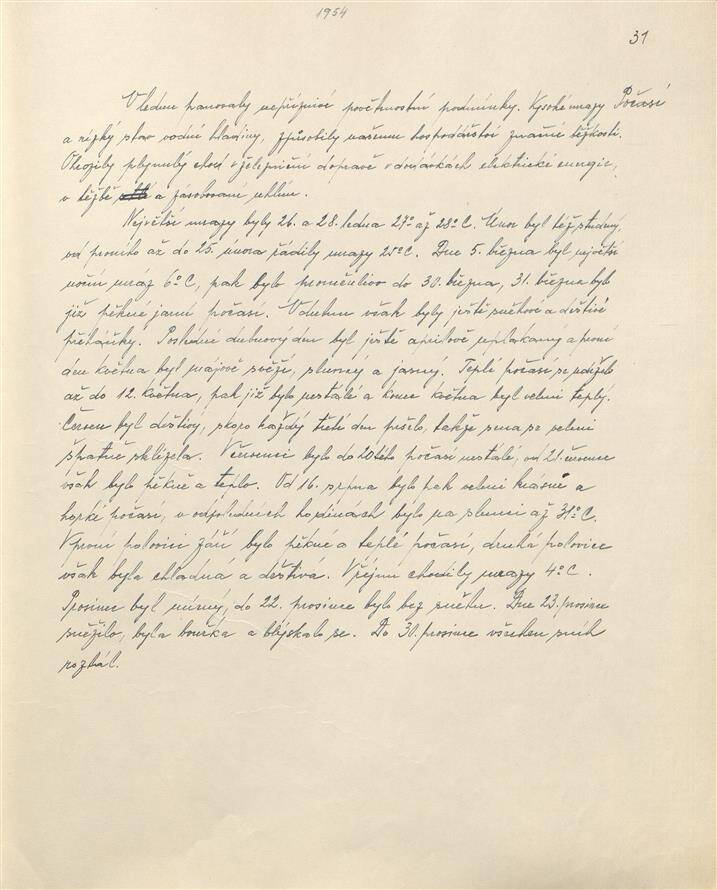 1954
31
V lednu panovaly nepříznivé povětrnostní podmínky. Vysoké mrazy Počasí
a nízký stav vodní hladiny, způsobily našemu hospodářství značné těžkosti.
Ohrozily plynulý chod v železniční dopravě v dodávkách elektrické energie,
v těžbě a zásobování uhlím.
Největší mrazy byly 26. a 28. ledna 27° až 28° C. Únor byl též studený,
od prvního až do 25. února řádily mrazy 25° C. Dne 5. března byl největší
noční mráz 6° C, pak bylo proměnlivo do 30. března, 31. března bylo
již pěkné jarní počasí. V dubnu však byly ještě sněhové a dešťové
přeháňky. Poslední dubnový den byl ještě aprílově uplakaný a první
den května byl májově svěží, slunný a jasný. Teplé počasí se udrželo
až do 12. května, pak již bylo nestálé a konec května byl velmi teplý.
Červen byl deštivý, skoro každý třetí den pršelo, takže sena se velmi
špatně sklízela. V červenci bylo do 20tého počasí nestálé, od 21. července
však bylo pěkně a teplo. Od 16. srpna bylo pak velmi krásné a
horké počasí, v odpoledních hodinách bylo na slunci až 31° C.
V první polovici září bylo pěkné a teplé počasí, druhá polovice
však byla chladná a deštivá. V říjnu chodily mrazy 4° C.
Prosinec byl mírný, do 22. prosince bylo bez sněhu. Dne 23. prosince
sněžilo, byla bouřka a blýskalo se. Do 30. prosince všechen sníh
roztál.